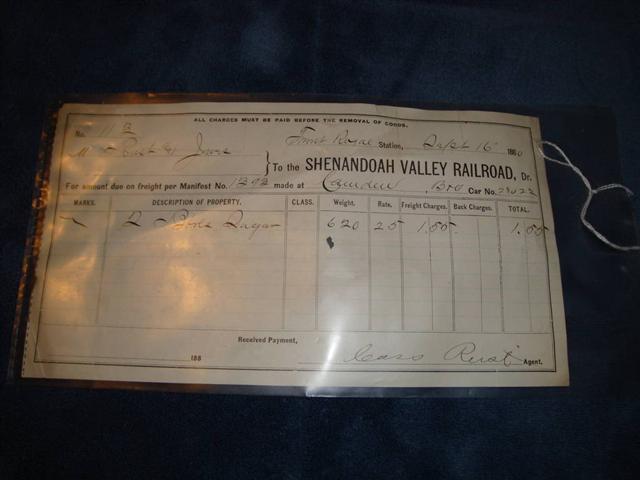 ALL CHARGES MUST BE PAID BEFORE THE REMOVAL OF GOODS.
No.
Front Royal Station, Sept 16 1880
M
To the SHENANDOAH VALLEY RAILROAD, Dr.
For amount due on freight per Manifest No. 1302 made at Camden Car No.
MARKS. DESCRIPTION OF PROPERTY. CLASS. Weight. Rate. Freight Charges. Back Charges. TOTAL.
2 Sugar 620 25 1.55 1.55
Received Payment,
188 Agent.